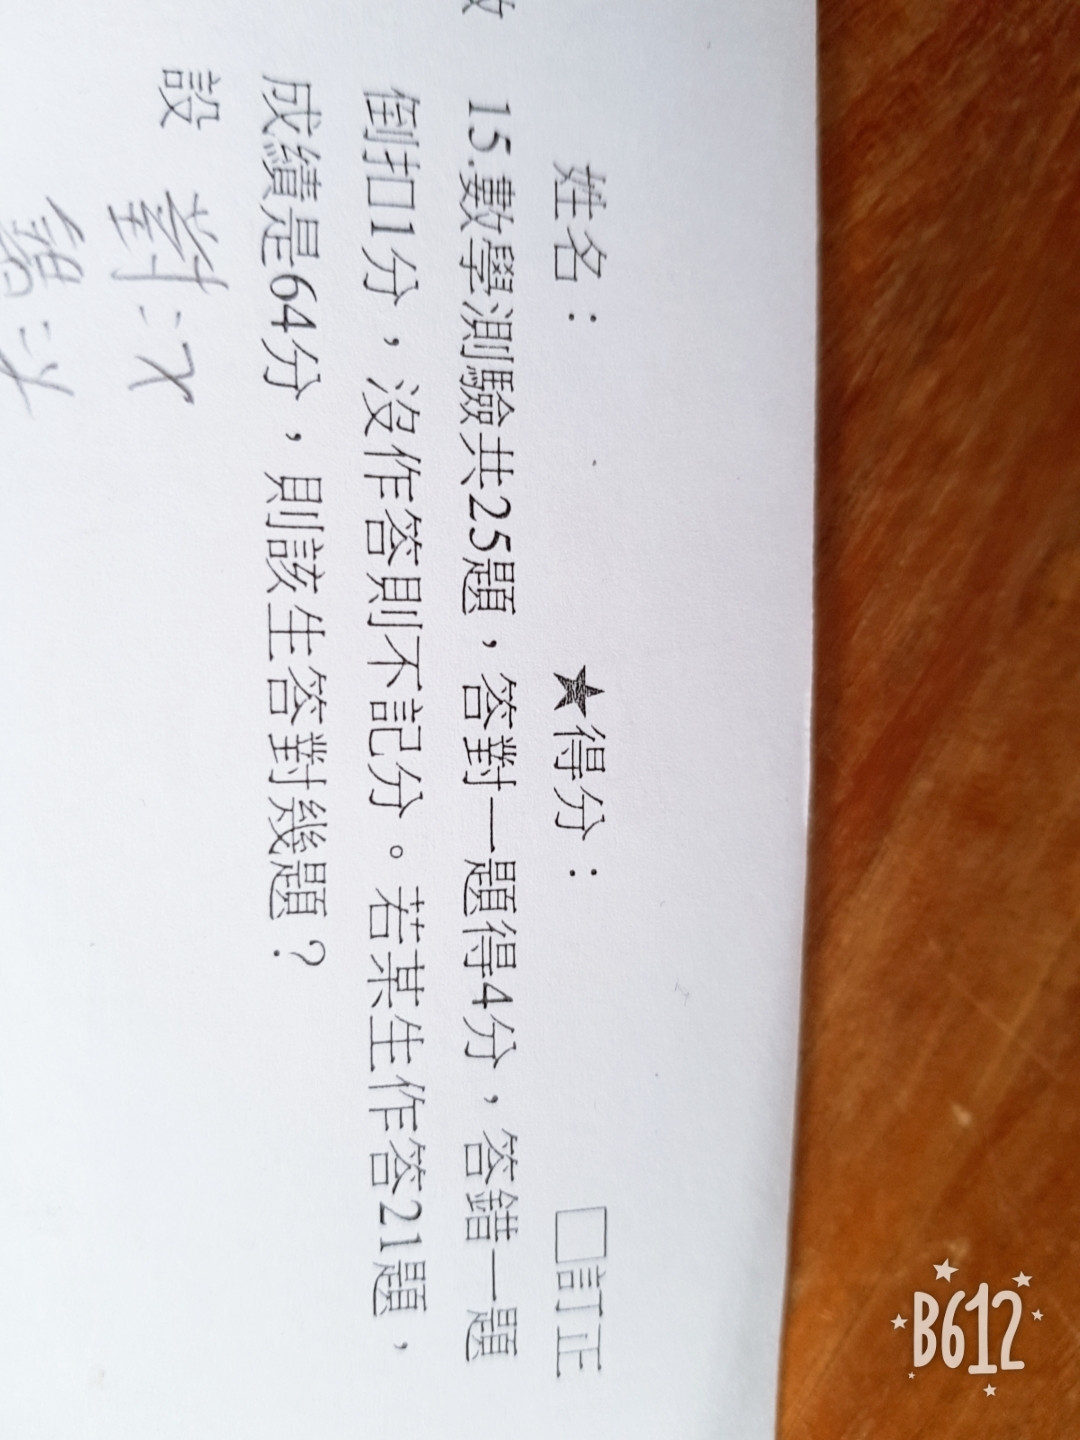 姓名： ★得分： □訂正
15.數學測驗共25題，答對一題得4分，答錯一題
倒扣1分，沒作答則不記分。若某生作答21題，
成績是64分，則該生答對幾題？
設 對：x
錯：y
B612